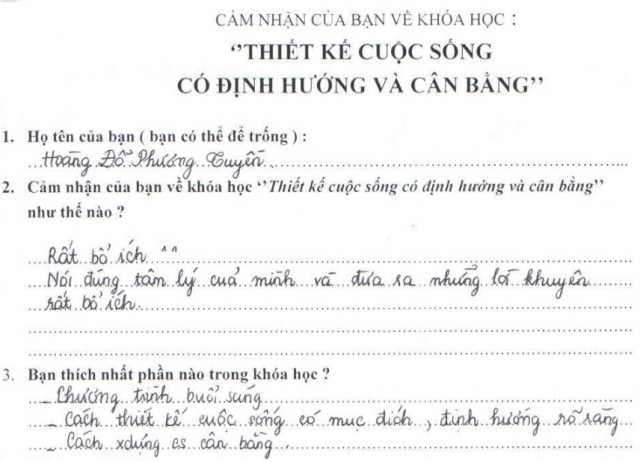 CẢM NHẬN CỦA BẠN VỀ KHÓA HỌC :
‘’THIẾT KẾ CUỘC SỐNG
CÓ ĐỊNH HƯỚNG VÀ CÂN BẰNG’’
1. Họ tên của bạn ( bạn có thể để trống ) :
Hoàng Đỗ Phương Tuyền
2. Cảm nhận của bạn về khóa học ‘’Thiết kế cuộc sống có định hướng và cân bằng’’
như thế nào ?
Rất bổ ích ^^
Nói đúng tâm lý của mình và đưa ra những lời khuyên
rất bổ ích.
3. Bạn thích nhất phần nào trong khóa học ?
- Chương trình buổi sáng
- Cách thiết kế cuộc sống có mục đích, định hướng rõ ràng
- Cách xdựng cs cân bằng.